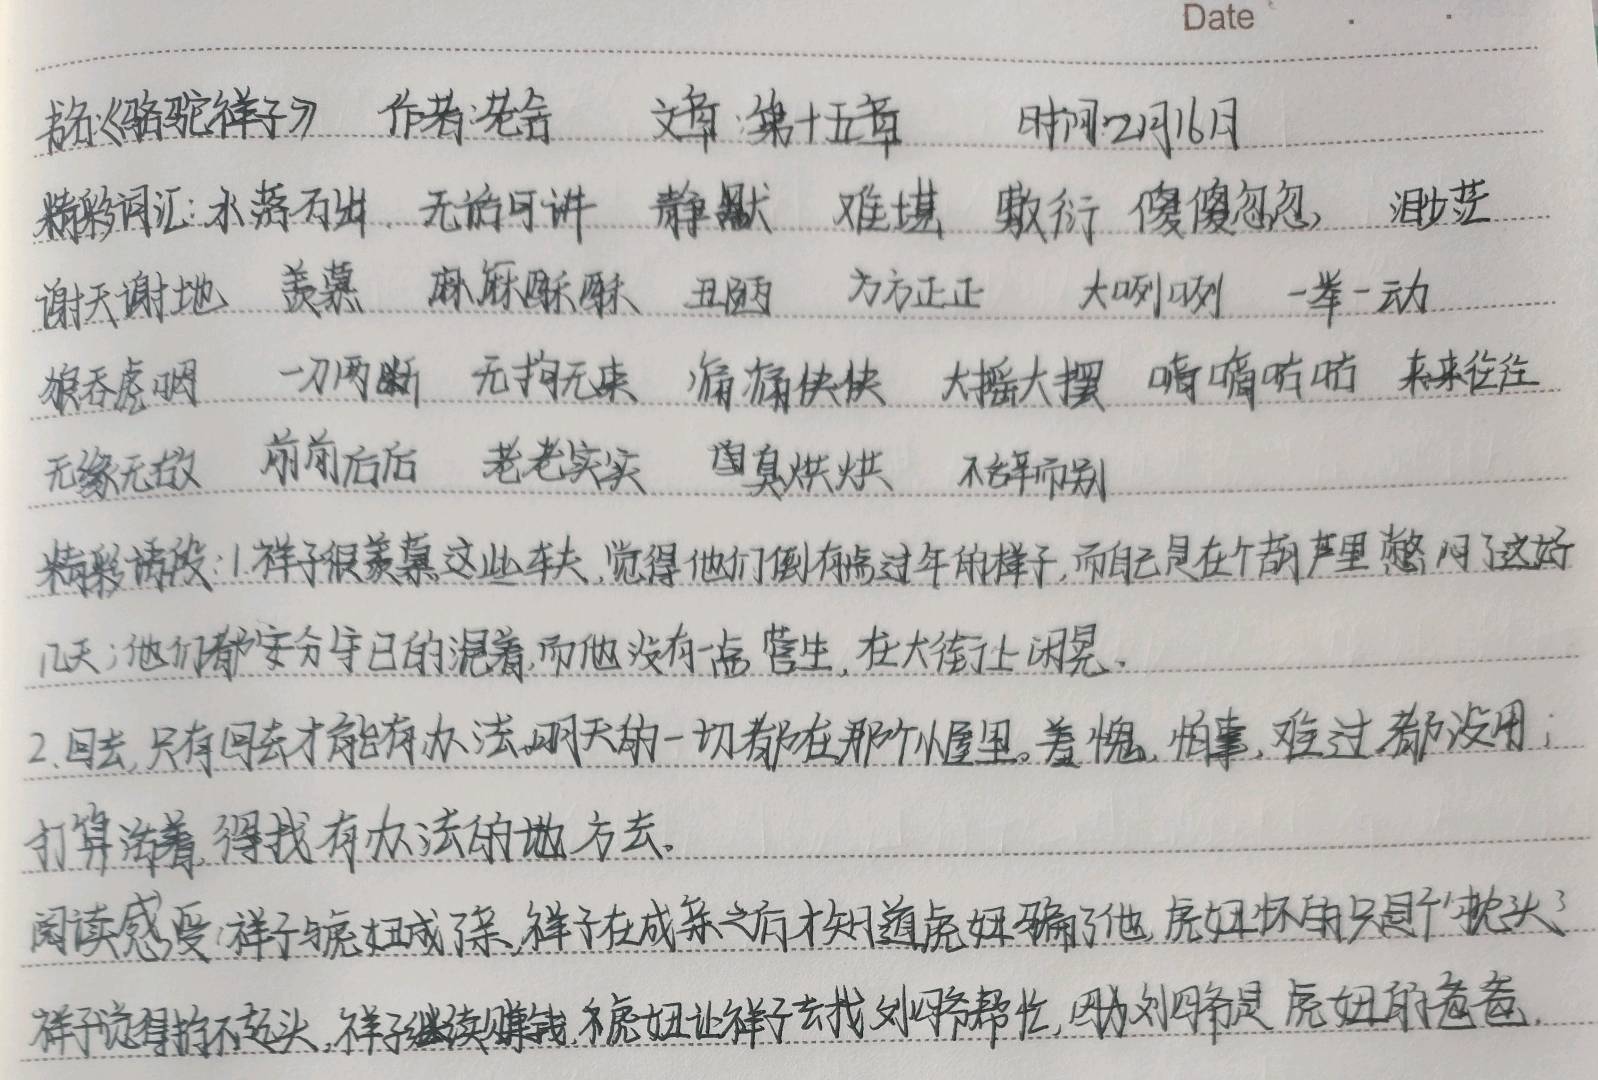 Date
书名:《骆驼祥子》 作者:老舍 文章:第十五章 时间:2月16日
精彩词汇:水落石出 无话可讲 静默 难堪 敷衍 傻傻忽忽, 渺茫
谢天谢地 羡慕 麻麻酥酥 丑陋 方方正正 大咧咧 一举一动
狼吞虎咽 一刀两断 无拘无束 痛痛快快 大摇大摆 嘀嘀咕咕 来来往往
无缘无故 前前后后 老老实实 臭烘烘 不辞而别
精彩语段:1.祥子很羡慕这些车夫,觉得他们倒有点过年的样子,而自己是在个葫芦里憋闷了这好
几天;他们都安分守己的混着,而他没有一点营生,在大街上闲晃。
2.回去,只有回去才能有办法。明天的一切都在那个小屋里。羞愧,怕事,难过都没用;
打算活着,得找有办法的地方去。
阅读感受:祥子与虎妞成了亲,祥子在成亲之后才知道虎妞骗了他,虎妞怀的只是个“枕头”
祥子觉得抬不起头,祥子继续赚钱,虎妞让祥子去找刘四爷帮忙,因为刘四爷是虎妞的爸爸,